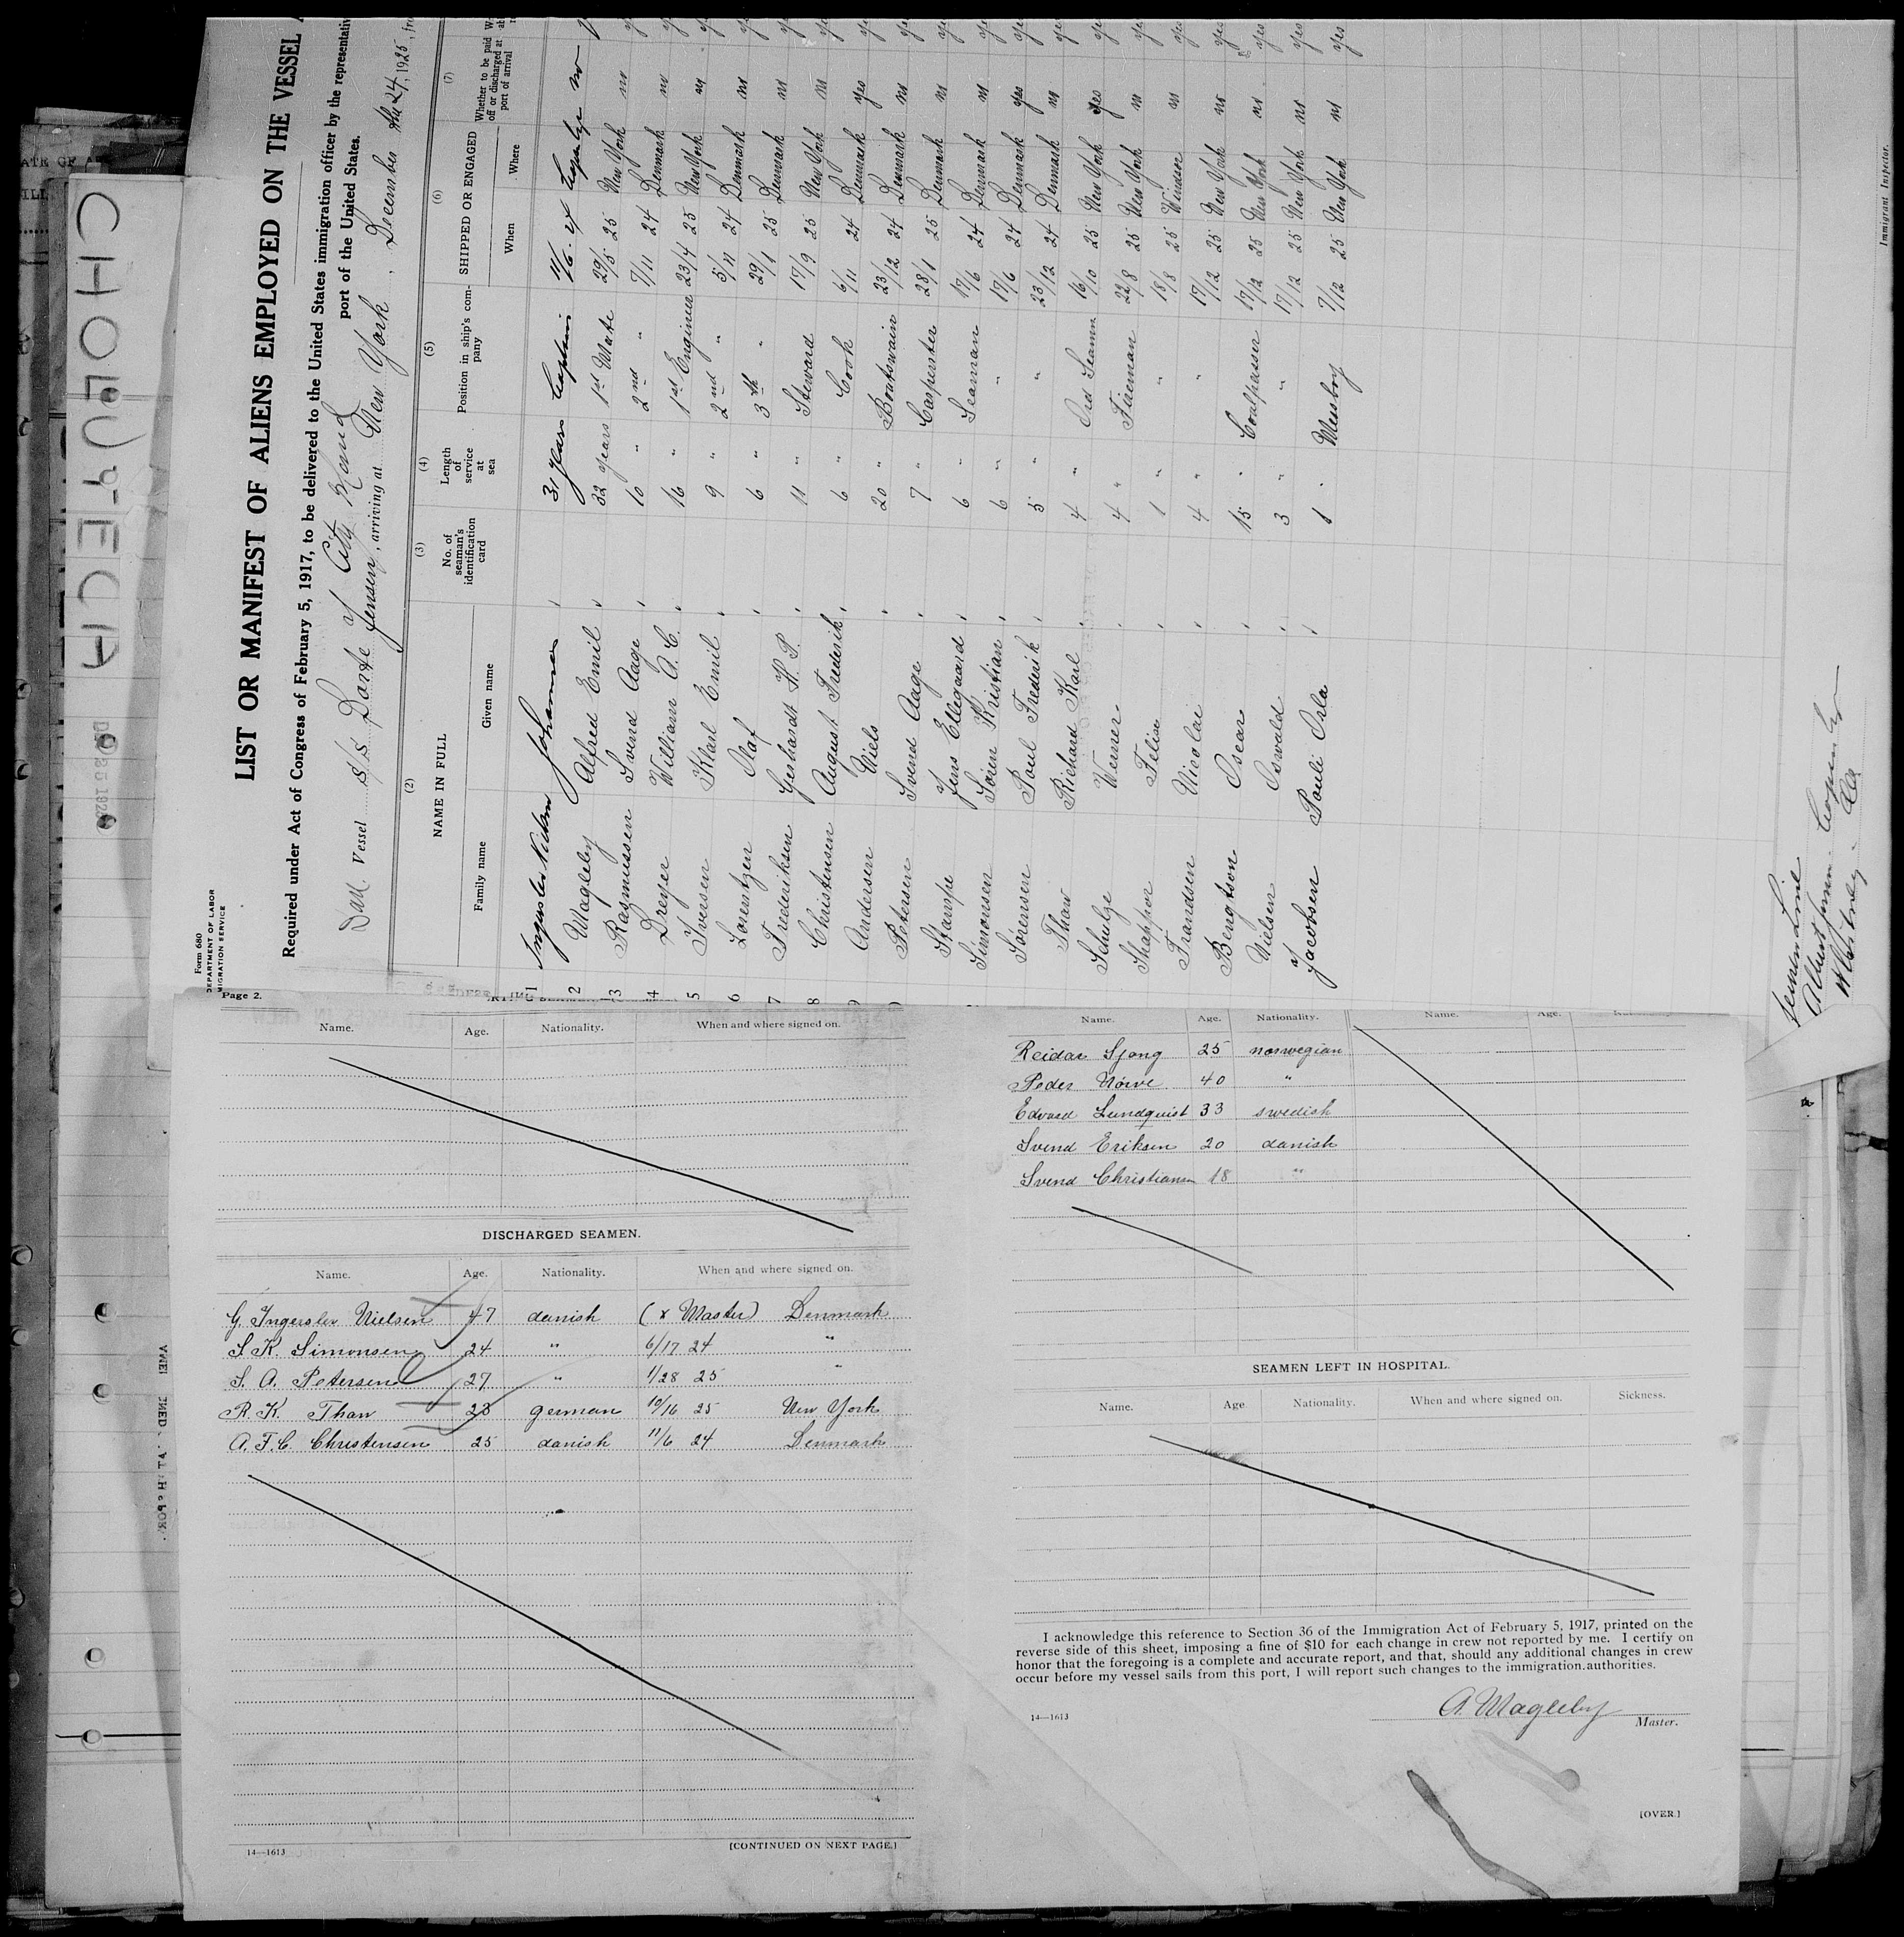 CHOLUTECIA
Form 680
DEPARTMENT OF LABOR
MIGRATION SERVICE
LIST OR MANIFEST OF ALIENS EMPLOYED ON THE VESSEL
Required under Act of Congress of February 5, 1917, to be delivered to the United States immigration officer by the representativ
port of the United States.
Vessel S/S Dorte Jensen, arriving at New York, December the 24, 1925, fro
(2) (3) (4) (5) (6) (7)
NAME IN FULL
Family name Given name
No. of seaman's identification card
Length of service at sea
Position in ship's company
SHIPPED OR ENGAGED
When Where
Whether to be paid off or discharged at port of arrival
1 Ingerslev Nielsen Johannes 31 years Captain 11/6. 24 no
2 Magleby Alfred Emil 32 years 1st Mate 29/5 25 New York no yes
3 Rasmussen Svend Aage 10 " 2nd " 7/11 24 Denmark no yes
4 Dreyer William A. C. 16 " 1st Engineer 23/4 25 New York no yes
5 Iversen Karl Emil 9 " 2nd " 5/11 24 Denmark no yes
6 Lorentzen Olaf 6 " 3th " 29/1 25 Denmark no yes
7 Frederiksen Gerhardt H. P. 11 " Steward 17/9 25 New York no yes
8 Christensen August Frederik 6 " Cook 6/11 24 Denmark yes yes
9 Andersen Niels 20 " Boatswain 23/12 24 Denmark no yes
Petersen Svend Aage 7 " Carpenter 28/1 25 Denmark no yes
Stampe Jens Ellegaard 6 " Seaman 17/6 24 Denmark no yes
Simonsen Sören Kristian 6 " " 17/6 24 Denmark yes yes
Sörensen Poul Frederik 5 " " 23/12 24 Denmark no yes
Thaw Richard Karl 4 " Ord Seaman 16/10 25 New York yes yes
Schulze Werner 4 " Fireman 22/8 25 New York no yes
Shapper Felix 1 " " 18/8 25 Windsor no yes
Frandsen Nicolai 4 " " 17/12 25 New York no yes
Bengtson Oscar 15 " Coalpasser 17/12 25 New York no yes
Nielsen Oswald 3 " " 17/12 25 New York no yes
Jacobsen Pouli Orla 1 " Messboy 7/12 25 New York no yes
Immigrant Inspector.
Page 2.
Name. Age. Nationality. When and where signed on.
DISCHARGED SEAMEN.
Name. Age. Nationality. When and where signed on.
G. Ingerslev Nielsen 47 danish (x Master) Denmark
S. K. Simonsen 24 " 6/17 24 "
S. A. Petersen 27 " 1/28 25 "
R. K. Thaw 23 german 10/16 25 New York
A. F. C. Christensen 25 danish 11/6 24 Denmark
14—1613
[CONTINUED ON NEXT PAGE.]
Name. Age. Nationality. Name. Age. Nationality.
Reidar Sjong 25 norwegian
Peder Nörve 40 "
Edvard Lundquist 33 swedish
Svend Eriksen 20 danish
Svend Christiansen 18 "
SEAMEN LEFT IN HOSPITAL.
Name. Age. Nationality. When and where signed on. Sickness.
I acknowledge this reference to Section 36 of the Immigration Act of February 5, 1917, printed on the
reverse side of this sheet, imposing a fine of $10 for each change in crew not reported by me. I certify on
honor that the foregoing is a complete and accurate report, and that, should any additional changes in crew
occur before my vessel sails from this port, I will report such changes to the immigration authorities.
A. Magleby
Master.
14—1613
[OVER.]